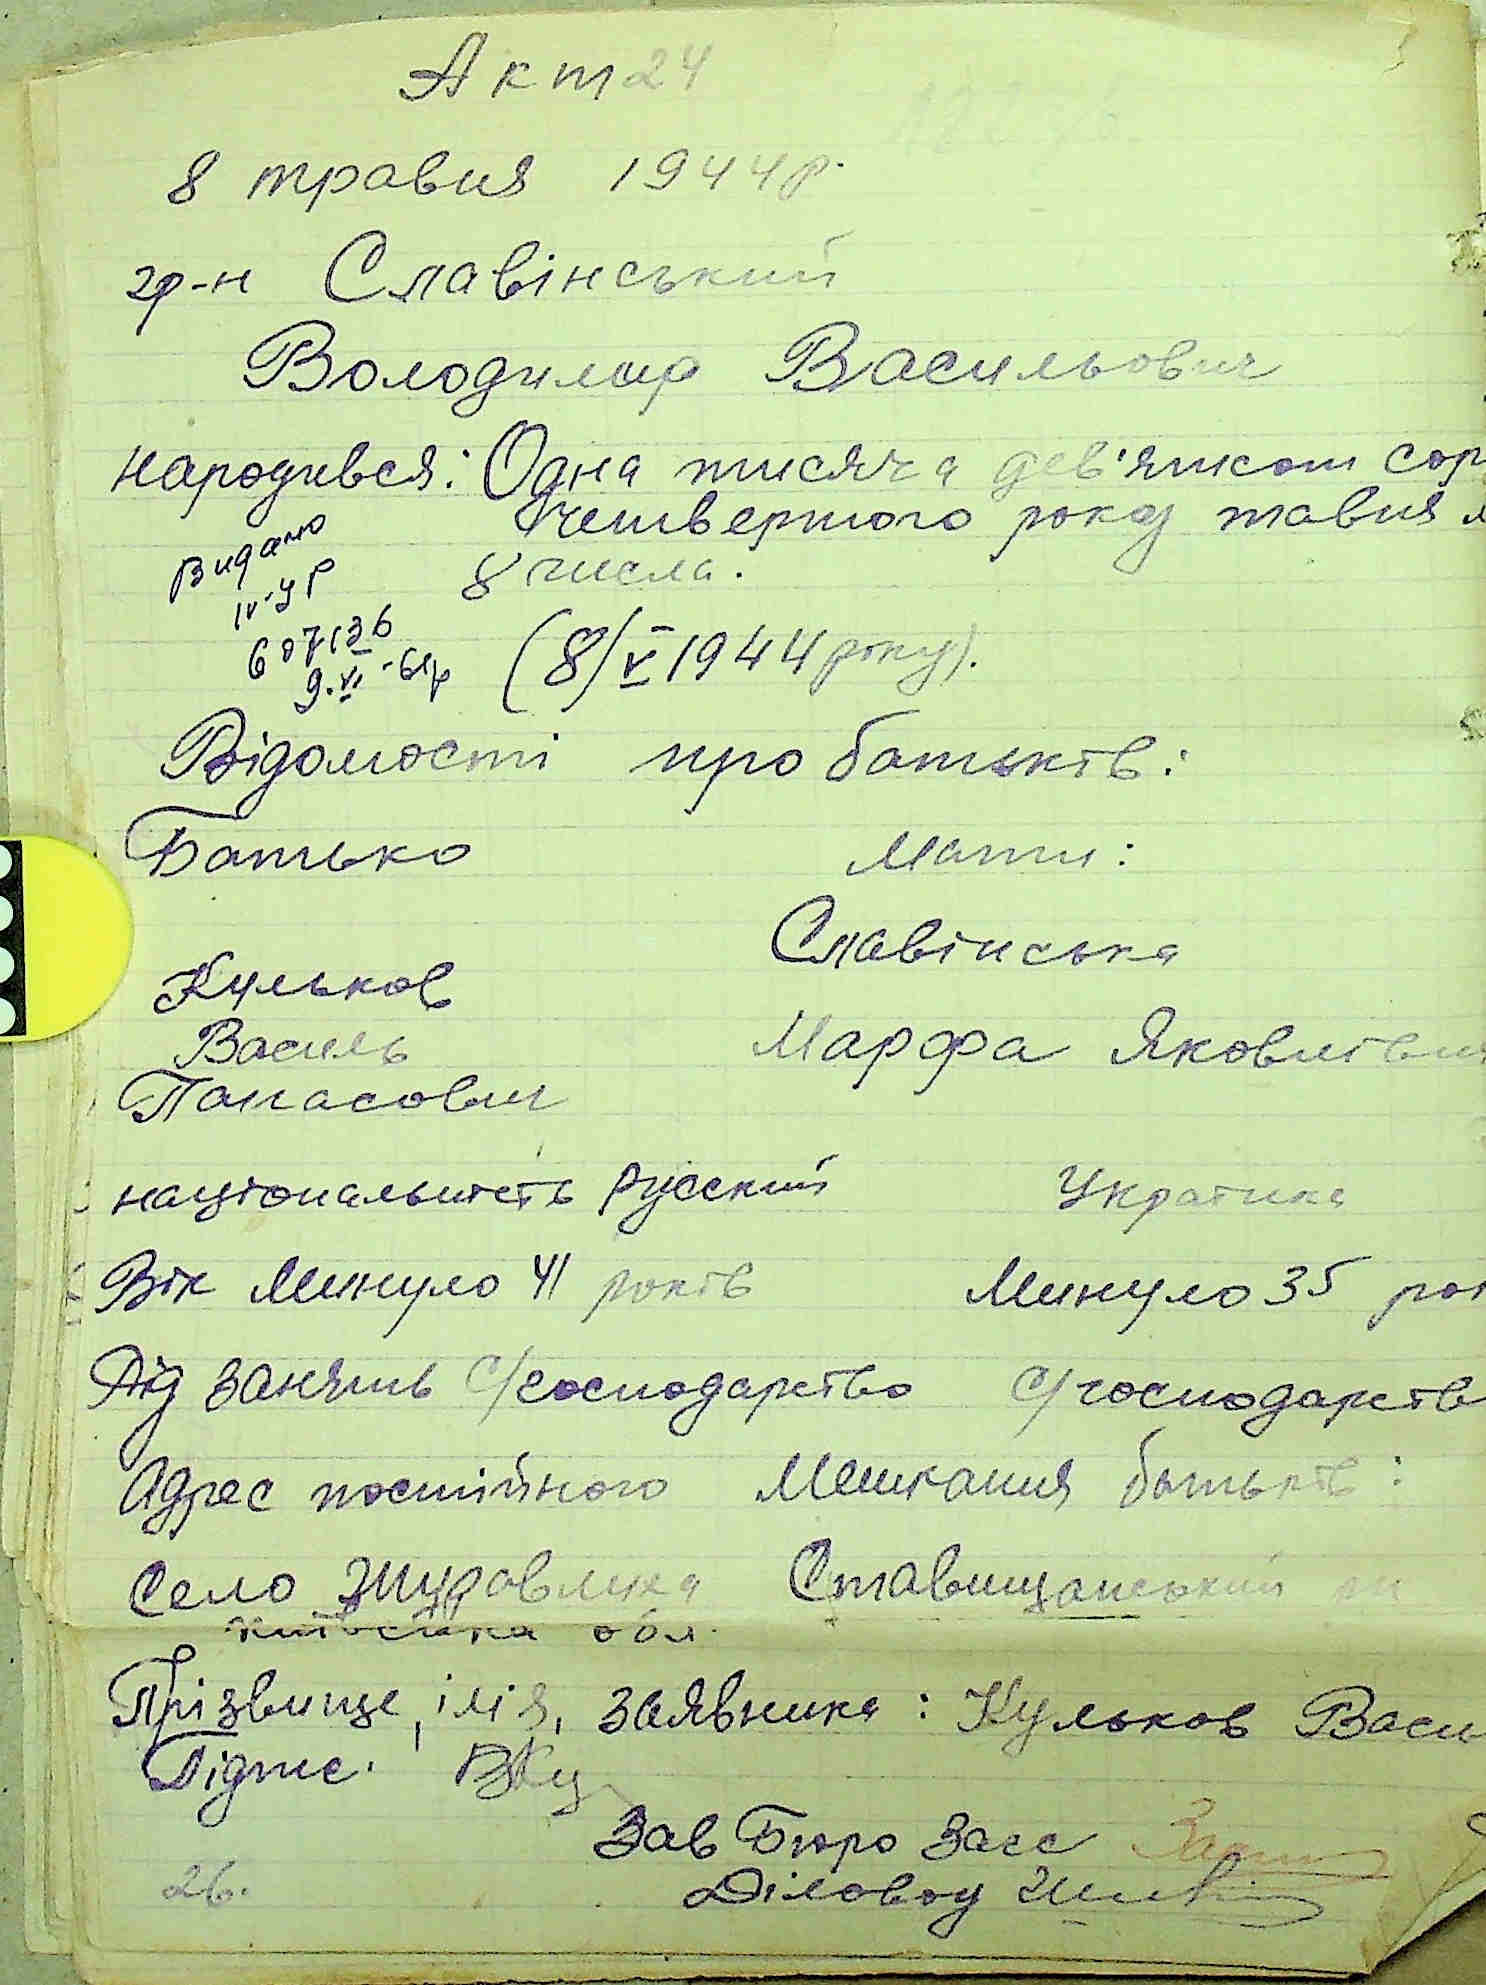 Акт 24
8 травня 1944 р.
гр-н Славінський
Володимир Васильович
народився: Одна тисяча дев'ятсот сор
четвертого року тавня
8 числа.
Видано
IV-УР
607136
9.VI-61р
(8/V 1944 року).
Відомості про батьків:
Батько
Мати:
Славінська
Кульков
Василь
Марфа Яковлівна
Панасович
національність русский
Українка
Вік Минуло 41 років
Минуло 35 рок
Рід занять с/господарство
с/господарств
Адрес постійного Мешкання батьків:
Село Журавлиха Ставищанський
київська обл.
Прізвище, ім'я, заявника: Кульков Васи
Підпис. ВКу
Зав Бюро Загс
Діловод
26.